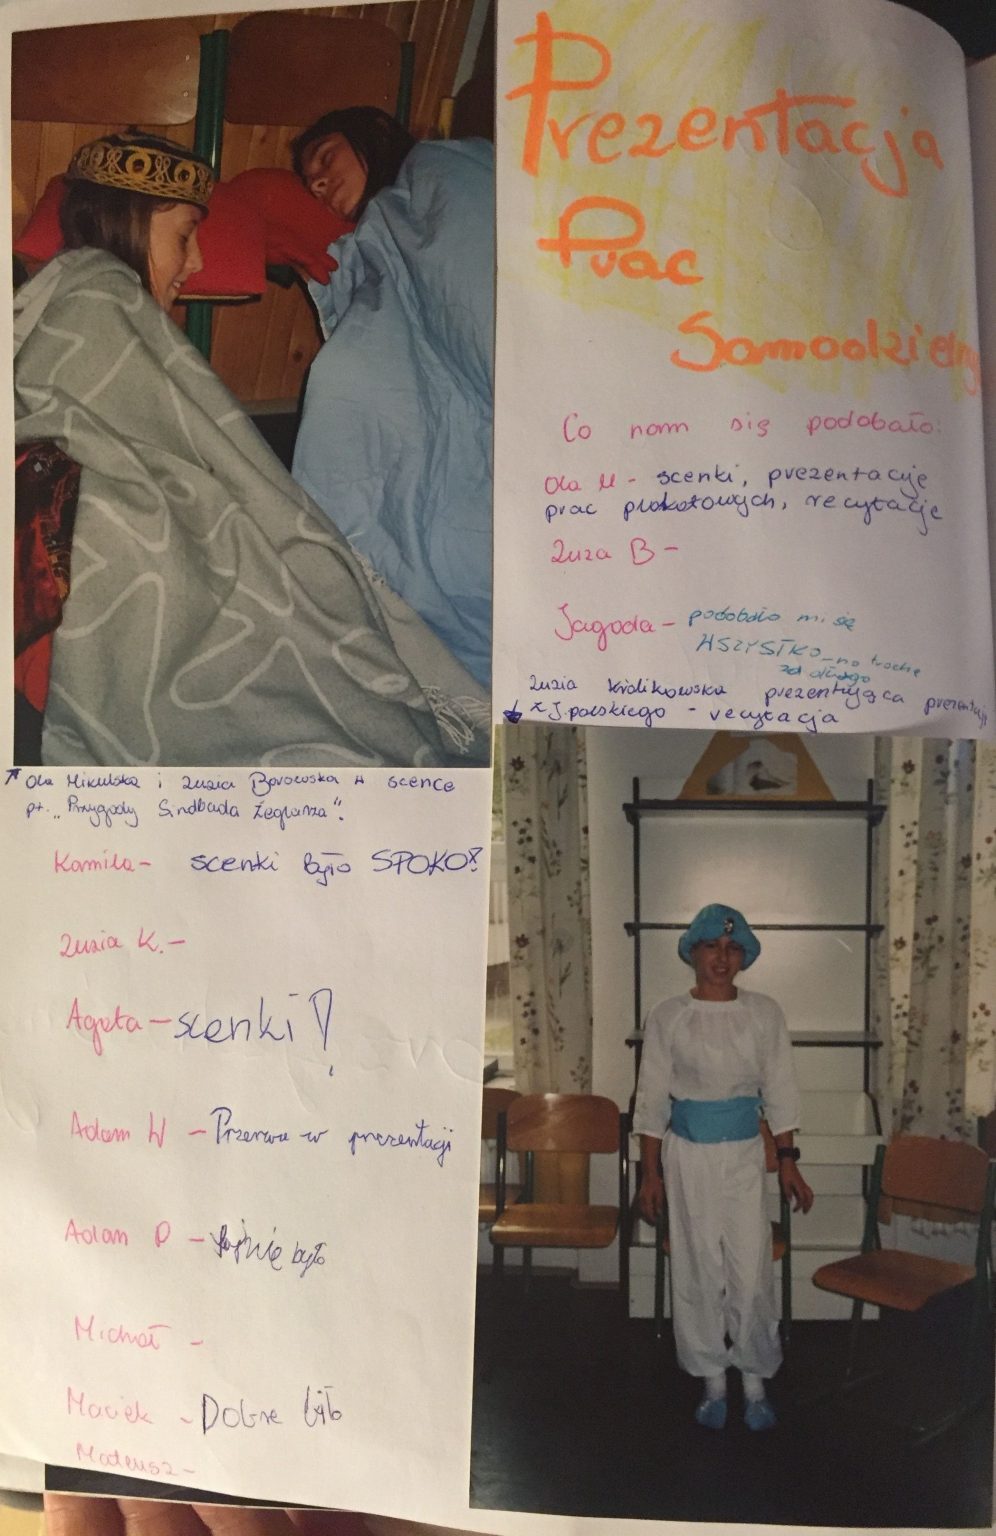 Prezentacja
Prac
Samodzielny
Co nam się podobało:
Ola M - scenki, prezentacje
prac plakatowych, recytacje
Zuza B -
Jagoda - podobało mi się
WSZYSTKO - no trochę
za długo
Zuzia Królikowska prezentująca prezentację
z J. polskiego - recytacja
Ola Mikulska i Zuzia Borowska w scence
pt. „Przygody Sindbada Żeglarza".
Kamila - scenki było SPOKO!
Zuzia K. -
Agata - scenki!
Adam W - Przerwa w prezentacji
Adam P - fajnie było
Michał -
Maciek - Dobre było
Mateusz -